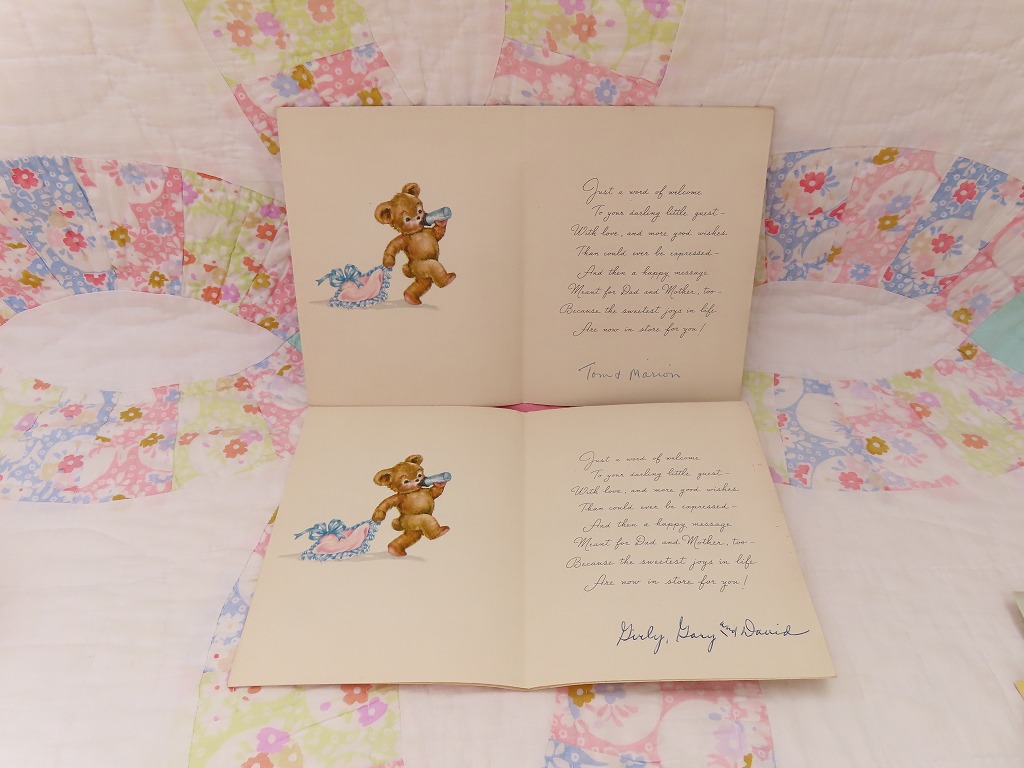 Just a word of welcome
To your darling little guest–
With love, and more good wishes
Than could ever be expressed–
And then a happy message
Meant for Dad and Mother, too–
Because the sweetest joys in life
Are now in store for you!
Tom & Marion
Just a word of welcome
To your darling little guest–
With love, and more good wishes
Than could ever be expressed–
And then a happy message
Meant for Dad and Mother, too–
Because the sweetest joys in life
Are now in store for you!
Girly, Gary and David